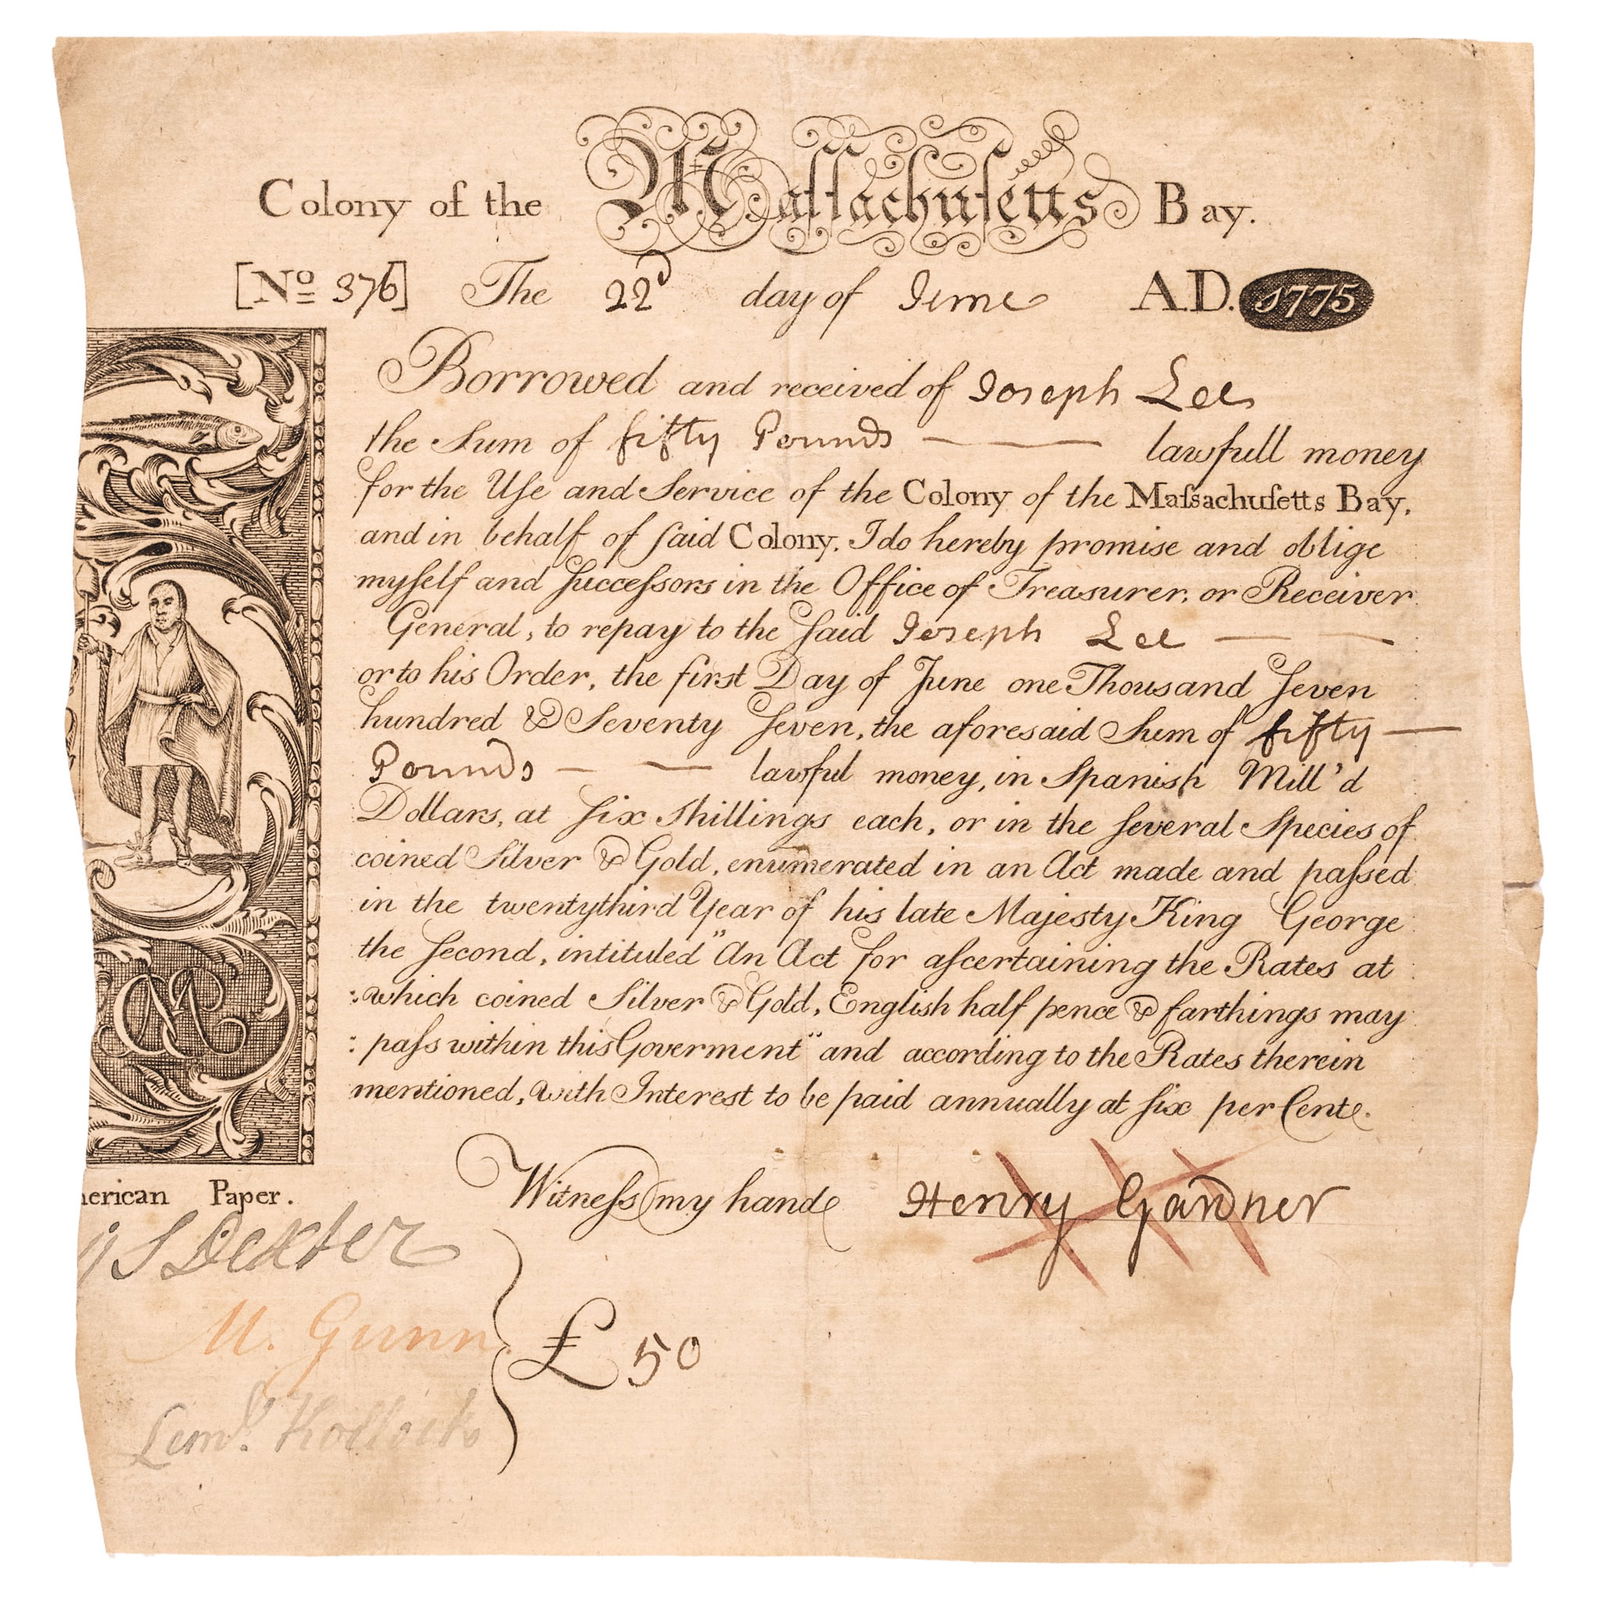 Colony of the Maſſachuſetts Bay.
[No 376] The 22d day of June A.D. 1775
Borrowed and received of Joseph Lee
the Sum of fifty Pounds — — lawfull money
for the Uſe and Service of the Colony of the Maſsachuſetts Bay,
and in behalf of ſaid Colony. I do hereby promise and oblige
myſelf and Succeſsors in the Office of Treasurer, or Receiver
General, to repay to the ſaid Joseph Lee — —
or to his Order, the first Day of June one Thousand Seven
hundred & Seventy Seven, the aforesaid Sum of fifty —
Pounds — — lawful money, in Spanish Mill'd
Dollars, at ſix Shillings each, or in the ſeveral Species of
coined Silver & Gold, enumerated in an Act made and paſsed
in the twentythird Year of his late Majesty King George
the ſecond, intituled "An Act for aſcertaining the Rates at
which coined Silver & Gold, English half pence & farthings may
paſs within this Goverment" and according to the Rates therein
mentioned, with Interest to be paid annually at ſix per Cent.
Witneſs my hand Henry Gardner
erican Paper.
S Dexter
M. Gunn.
Leml. Kollock
£50
M